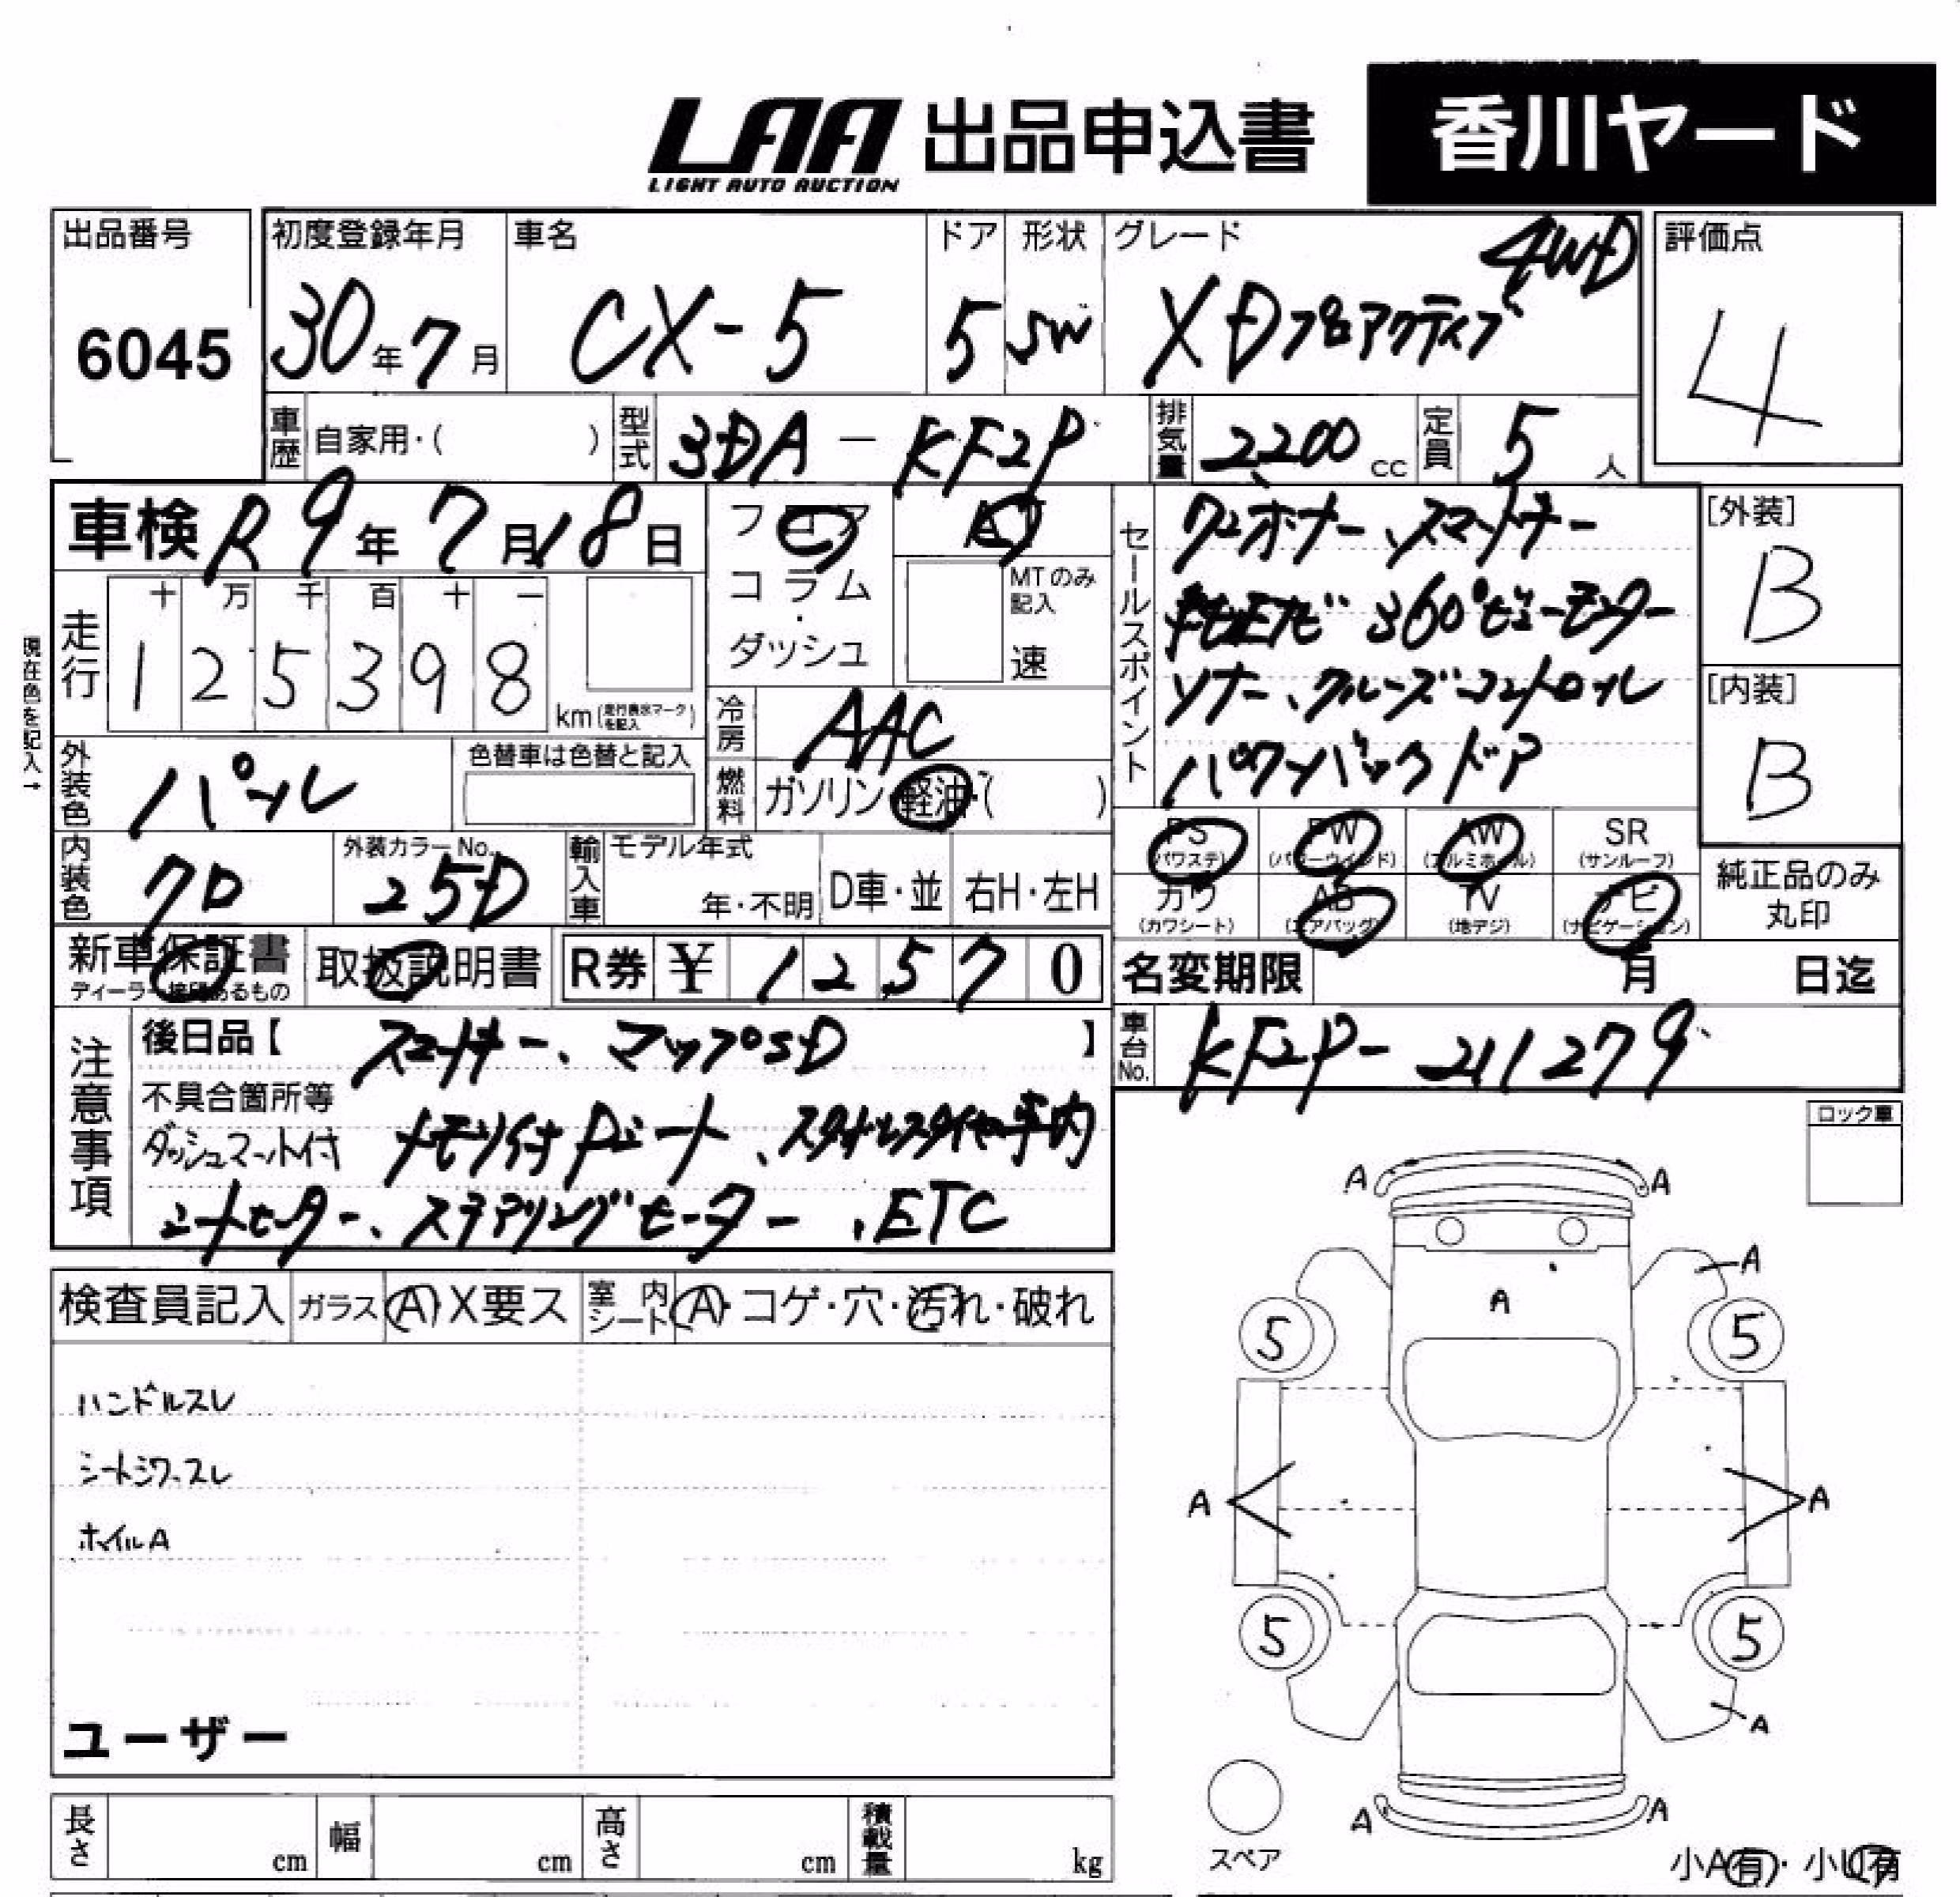 LAA 出品申込書 香川ヤード
LIGHT AUTO AUCTION
出品番号 初度登録年月 車名 ドア 形状 グレード 4WD 評価点
6045 30年7月 CX-5 5 SW XDプロアクティブ 4
車歴 自家用・( ) 型式 3DA-KF2P 排気量 2200cc 定員 5人
車検 R9年7月18日 フロア AT
コラム・ダッシュ MTのみ記入 速
走行 十 万 千 百 十 一
1 2 5 3 9 8 km(走行表示マークを記入)
現在色を記入→
セールスポイント ワンオーナー、スマートキー
ナビETビ 360°ビューモニター
ソナー、クルーズコントロール
パワーバックドア
[外装]
B
[内装]
B
冷房 AAC
外装色 パール 色替車は色替と記入
燃料 ガソリン・軽油・( )
内装色 クロ 外装カラーNo. 25D 輸入車 モデル年式 年・不明 D車・並 右H・左H
PS (パワステ) PW (パワーウィンド) AW (アルミホイール) SR (サンルーフ)
カワ (カワシート) AB (エアバッグ) TV (地デジ) ナビ (ナビゲーション)
純正品のみ
丸印
新車保証書 取扱説明書 R券 ¥ 1 2 5 7 0
ディーラー捺印あるもの
名変期限 月 日迄
車台No. KF2P-211279
注意事項
後日品【 スマートキー、マップSD 】
不具合箇所等
ダッシュマット付 メモリ付Pシート、スタッドレスタイヤ車内
シートヒーター、ステアリングヒーター、ETC
ロック車
検査員記入 ガラス A・X要ス 室内シート A・コゲ・穴・汚れ・破れ
ハンドルスレ
シートシワ、スレ
ホイルA
ユーザー
A A
A
A
5 5
A A
5 5
A
A A
スペア
長さ cm 幅 cm 高さ cm 積載量 kg
小A有・小U有